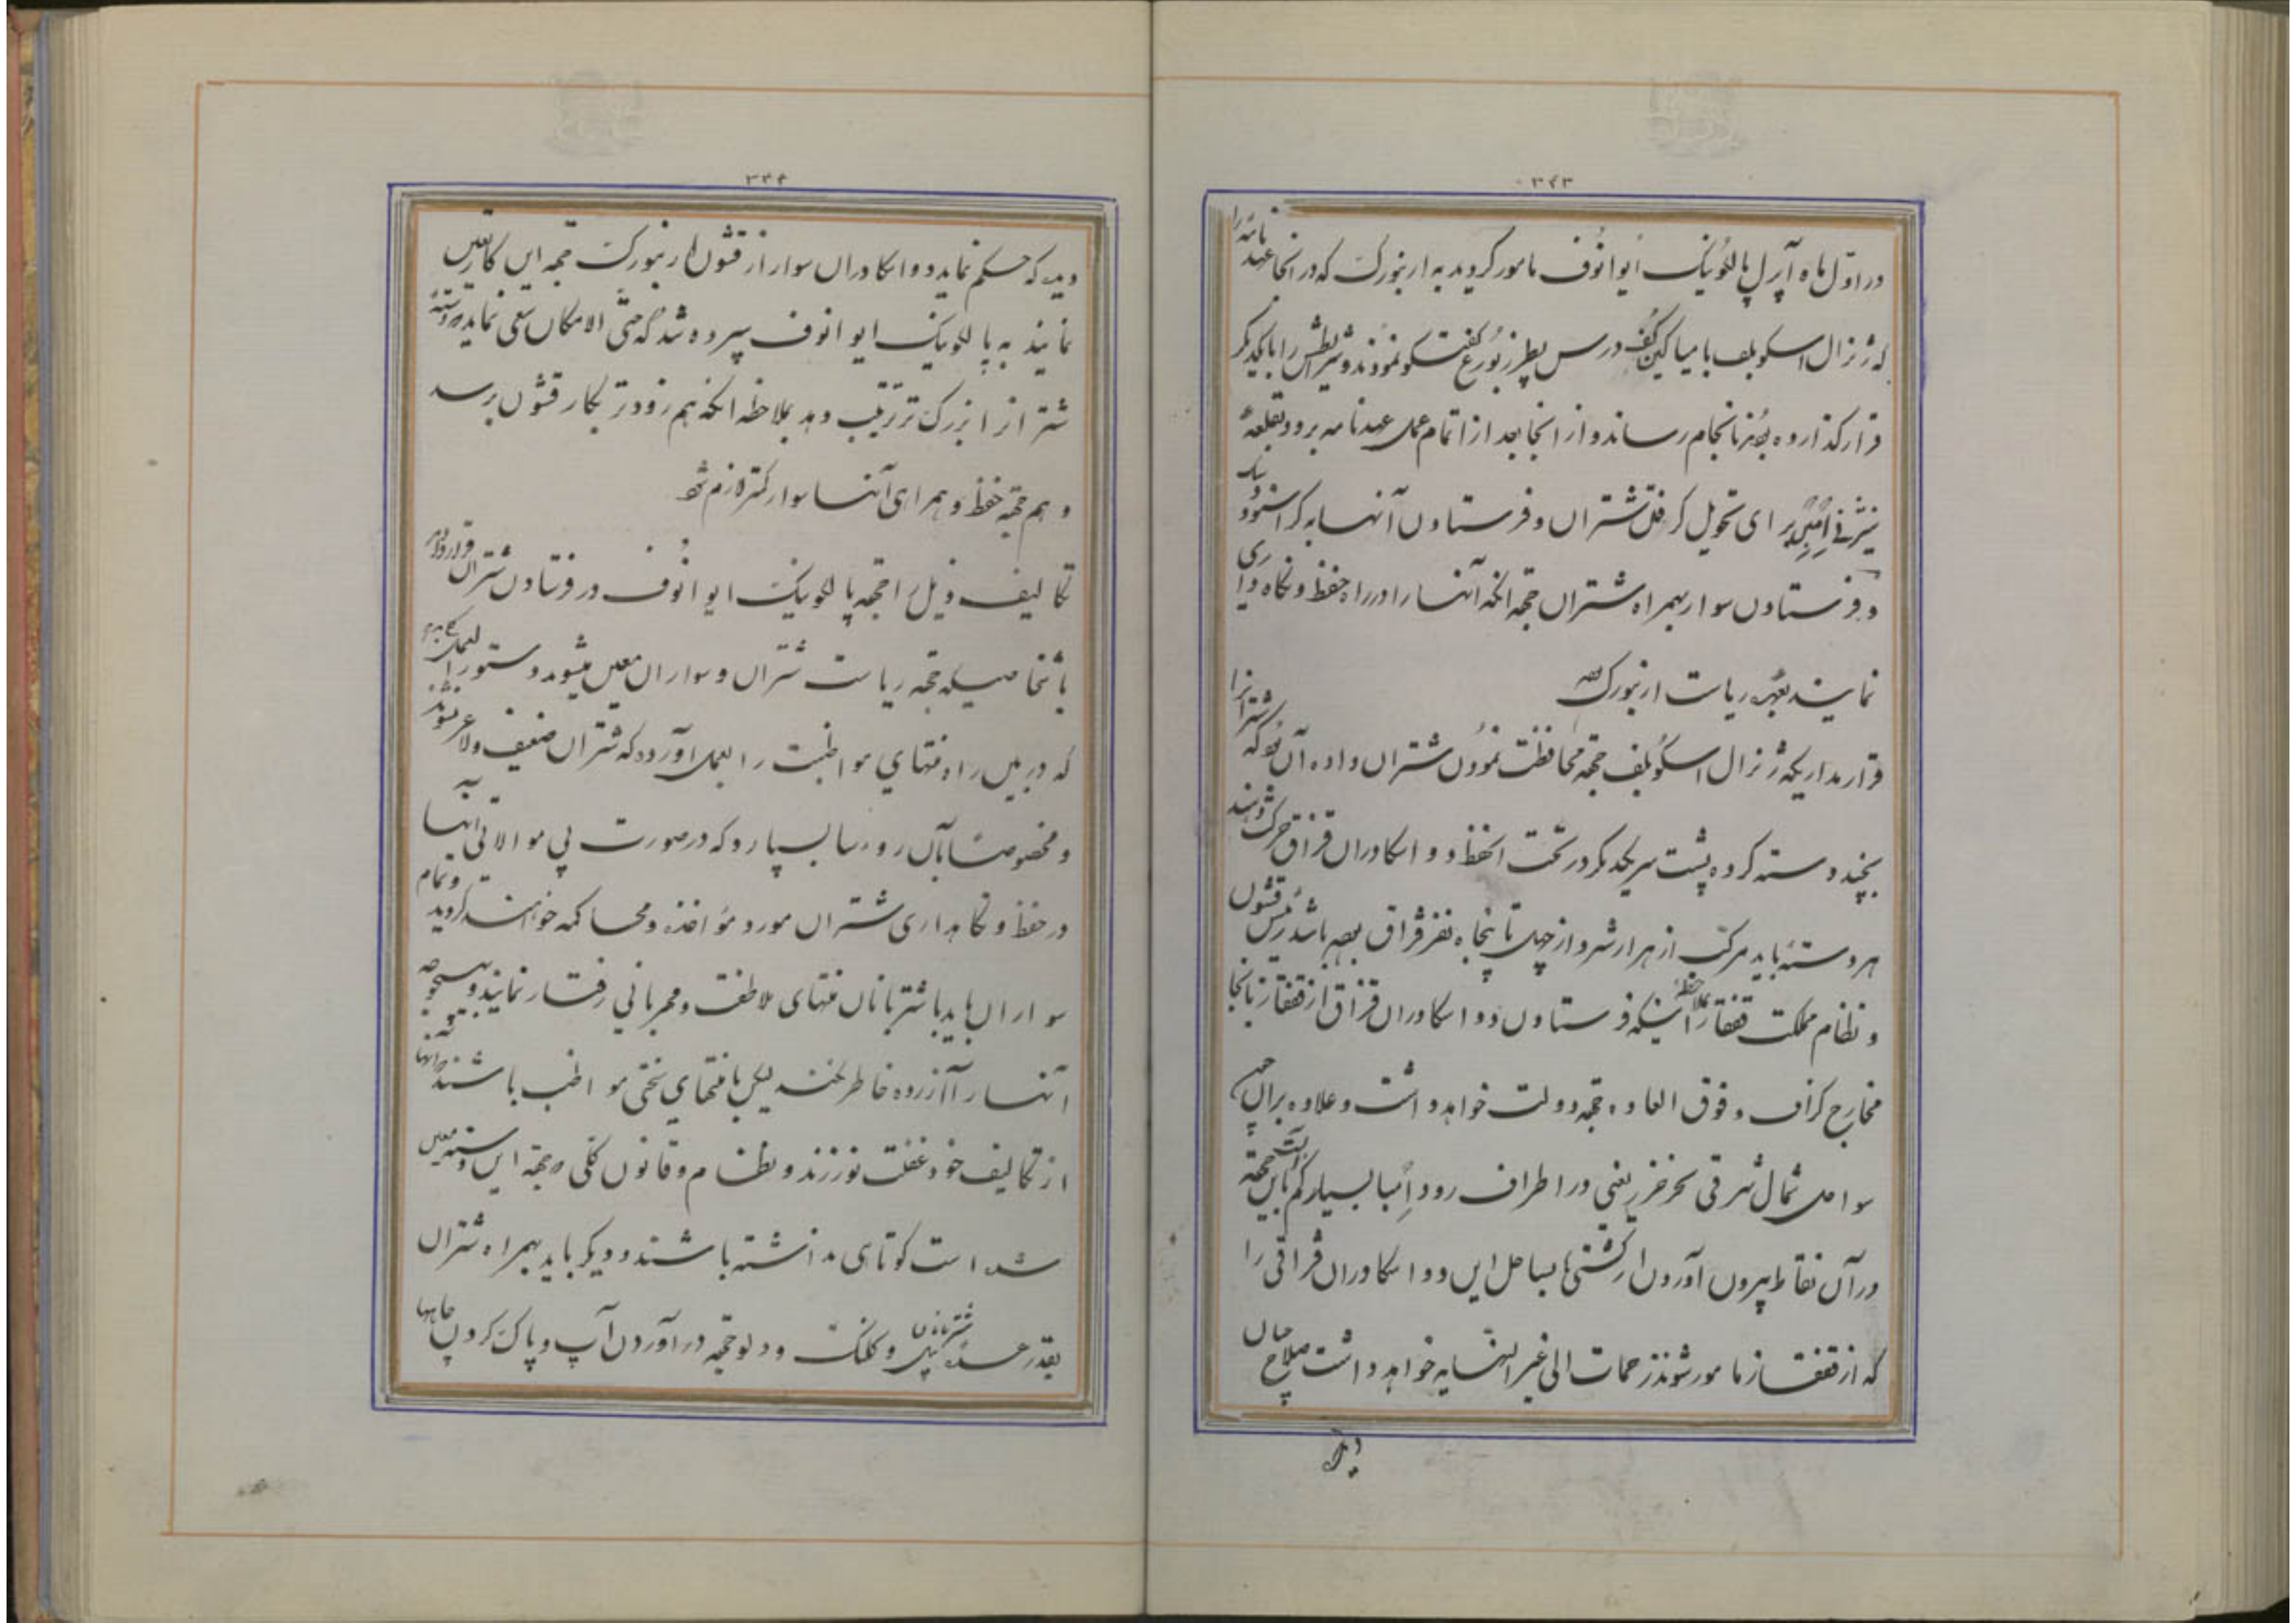 ۳۴۳
در اوّل ماه آپریل پالکونیک ایوانوف مامور گردید به ارنبورک که در انجا عهدنامه را
که ژنرال اسکوبلف با میاکین‌کف در سن پطرزبورغ گفتگو نموده و شرایطش را با یکدیگر
قرار گذارده بودند بانجام رساند و از انجا بعد از اتمام عمل عهدنامه برود بقلعهٔ
برای تحویل گرفتن شتران و فرستادن آنها به
و فرستادن سوار بهمراه شتران جهة انکه آنها را در راه حفظ و نگاه داری
نمایند بعهده ریاست ارنبورک
قرارمداریکه ژنرال اسکوبلف جهة محافظت نمودن شتران داده آن بود که شترانرا
بچند دسته کرده پشت سر یکدیگر در تحت الحفظ دو اسکادران قزاق حرکت دهند
هر دسته باید مرکب از هزار شتر و از چهل تا پنجاه نفر قزاق بوده باشد رئیس قشون
و نظام مملکت قفقاز بملاحظه اینکه فرستادن دو اسکادران قزاق از قفقاز بانجا
مخارج گزاف و فوق العاده جهة دولت خواهد داشت و علاوه بر ان چون
سواحل شمال شرقی بحر خزر یعنی در اطراف رود امبا بسیار کم آبست باین جهة
در آن نقاط بیرون آوردن از کشتی‌ها بساحل این دو اسکادران قزاقی را
که از قفقاز مامور شوند زحمات الی غیر النهایه خواهد داشت صلاح چنان
دید
۳۴۴
دید که حکم نماید دو اسکادران سوار از قشون ارنبورک جهة این کار معین
نمایند به پالکونیک ایوانوف سپرده شد که حتّی الامکان سعی نماید دستهٔ
شتران را بزرک‌تر ترتیب دهد بملاحظه انکه هم زودتر بکار قشون برسد
و هم جهة حفظ و همراهی آنها سوار کمتر لازم شود
تکالیف ذیل را جهة پالکونیک ایوانوف در فرستادن شتران قرار دادند
باشخاصیکه جهة ریاست شتران و سواران معین میشوند دستورالعمل بدهد
که در بین راه منتهای مواظبت را بعمل آورده که شتران ضعیف و لاغر نشوند
و مخصوصاً بآن روسا بسپارد که در صورت بی موالاتی انها
در حفظ و نگاهداری شتران مورد مؤاخذه و محاکمه خواهند گردید و تمام
سواران باید با شتربانان منتهای ملاطفت و مهربانی رفتار نمایند و بهیچوجه
آنها را آزرده خاطر نکنند لیکن با منتهای سختی مواظب باشند که آنها
از تکالیف خود غفلت نورزند و نظام و قانون کلی که جهة این دسته معین
شده است کوتاهی نداشته باشند و دیگر باید بهمراه شتران
بقدر عدهٔ شتربانان بیل و کلنک و دلو جهة درآوردن آب و پاک کردن چاهها